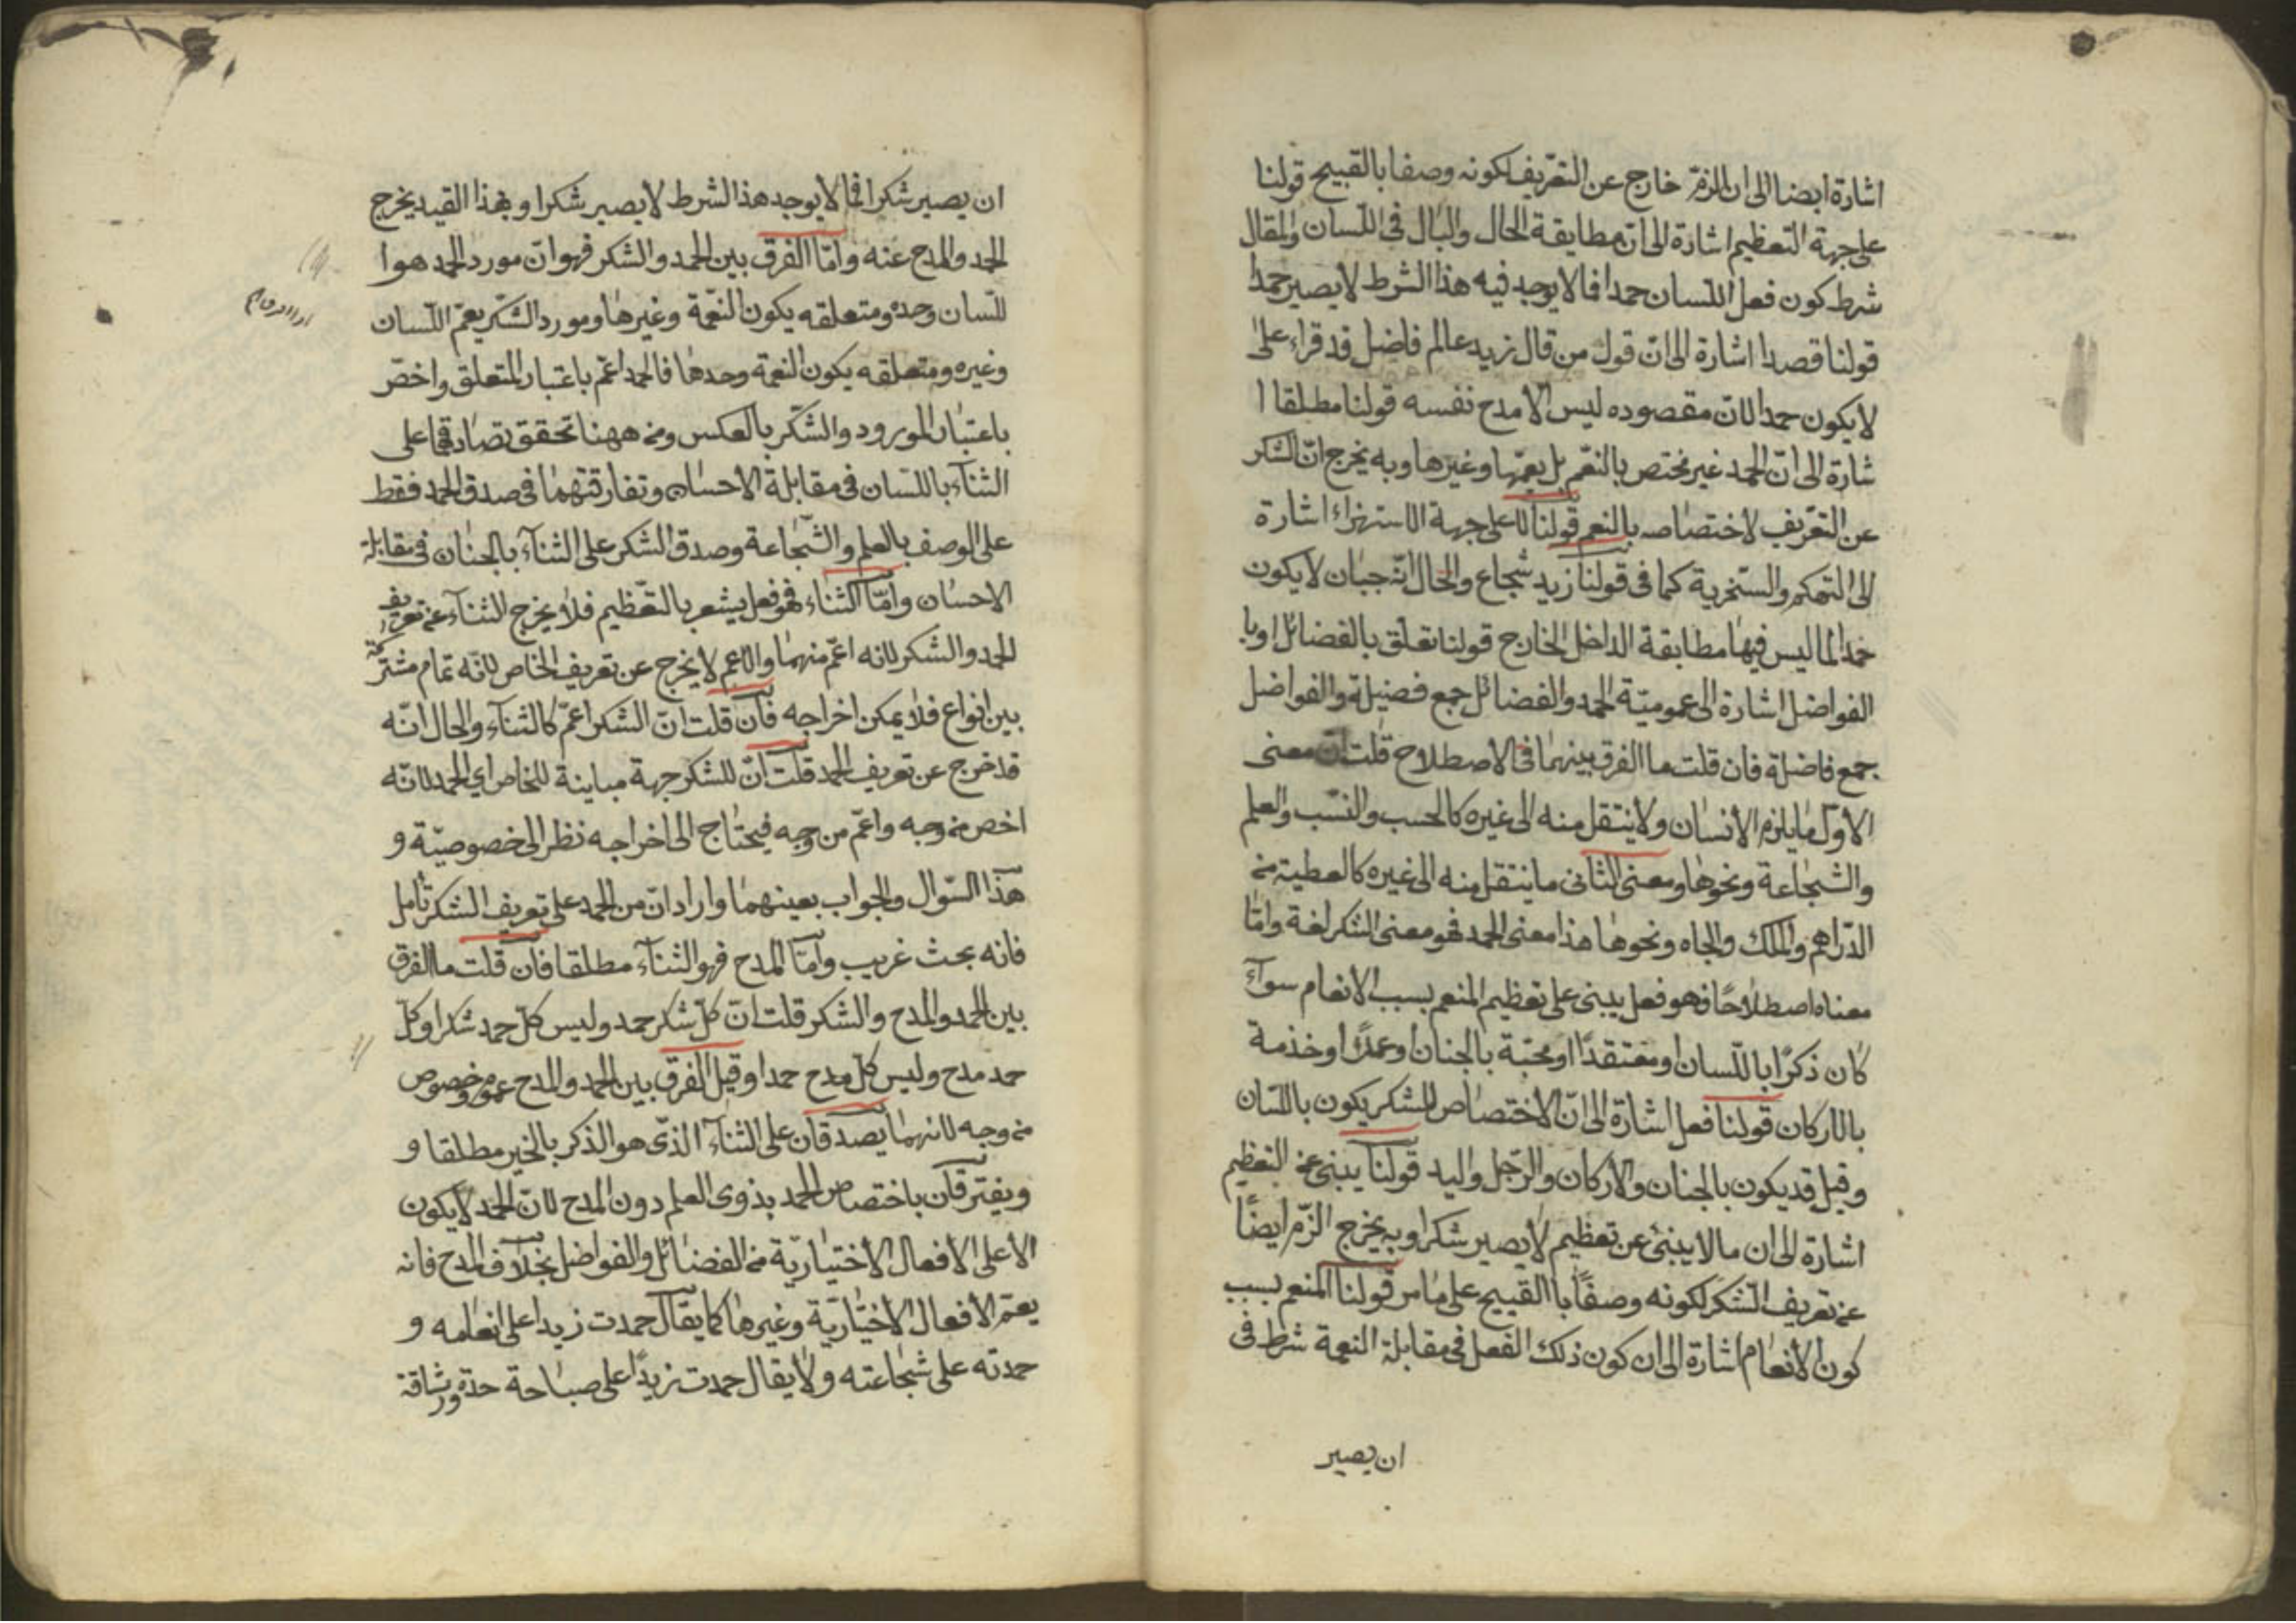 اشارة ايضا الى ان الذم خارج عن التعريف لكونه وصفا بالقبيح قولنا
على جهة التعظيم اشارة الى ان مطابقة الحال والبال فى اللسان والمقال
شرط كون فعل اللسان حمدا فما لا يوجد فيه هذا الشرط لا يصير حمدا
قولنا قصدا اشارة الى ان قول من قال زيد عالم فاضل قد قراء على
لا يكون حمدا لان مقصوده ليس الا مدح نفسه قولنا مطلقا ا
شارة الى ان الحمد غير مختص بالنعم بل يعمها وغيرها وبه يخرج ان الشكر
عن التعريف لاختصاصه بالنعم قولنا لا على جهة الاستهزاء اشارة
الى التهكم والسخرية كما فى قولنا زيد شجاع والحال انه جبان لا يكون
حمدا لما ليس فيها مطابقة الداخل الخارج قولنا تعلق بالفضائل او با
الفواضل اشارة الى عمومية الحمد والفضائل جمع فضيلة والفواضل
جمع فاضلة فان قلت ما الفرق بينهما فى الاصطلاح قلت ان معنى
الاول ما يلزم الأنسان ولا ينتقل منه الى غيره كالحسب والنسب والعلم
والشجاعة ونحوها ومعنى الثانى ما ينتقل منه الى غيره كالعطية من
الدراهم والملك والجاه ونحوها هذا معنى الحمد فهو معنى الشكر لغة واما
معناه اصطلاحا فهو فعل يبنى على تعظيم المنعم بسبب الانعام سوآء
كان ذكرا باللسان او معتقدا او محبة بالجنان او عملا او خذمة
بالاركان قولنا فعل اشارة الى ان الاختصاص للشكر يكون باللسان
وقيل قد يكون بالجنان والاركان والرجل واليد قولنا يبنى عن التعظيم
اشارة الى ان ما لا يبنئ عن تعظيم لا يصير شكرا وبه يخرج الزم ايضا
عن تعريف الشكر لكونه وصفا با القبيح على ما مر قولنا المنعم بسبب
كون الأنعام اشارة الى ان كون ذلك الفعل فى مقابلة النعمة شرط فى
ان يصير
ان يصير شكرا فما لا يوجد هذا الشرط لا يصير شكرا وبهذا القيد يخرج
الحمد والمدح عنه واما الفرق بين الحمد والشكر فهو ان مورد الحمد هو ا
للسان وحده ومتعلقه يكون النعمة وغيرها ومورد الشكر يعم اللسان
وغيره ومتعلقه يكون النعمة وحدها فالحمد اعم باعتبار المتعلق واخص
باعتبار المورود والشكر بالعكس ومن ههنا تحقق تصادقهما على
الثنآء باللسان فى مقابلة الاحسان وتفارقهما فى صدق الحمد فقط
على الوصف بالعلم والشجاعة وصدق الشكر على الثنآء بالجنان فى مقابلة
الاحسان واما الثناء فهو فعل يشعر بالتعظيم فلا يخرج الثنآء عن تعريف
الحمد والشكر لانه اعم منهما والاعم لا يخرج عن تعريف الخاص لانه تمام مشتركة
بين انواع فلا يمكن اخراجه فان قلت ان الشكر اعم كالثنآء والحال انه
قد خرج عن تعريف الحمد قلت ان للشكر جهة مباينة للخاص اي الحمد لانه
اخص من وجه واعم من وجه فيحتاج الى اخراجه نظر الى خصوصية و
هذا السوال والجواب بعينهما وارادان من الحمد على تعريف الشكر تأمل
فانه بحث غريب واما المدح فهو الثنآء مطلقا فان قلت ما الفرق
بين الحمد والمدح والشكر قلت ان كل شكر حمد وليس كل حمد شكرا وكل
حمد مدح وليس كل مدح حمدا وقيل الفرق بين الحمد والمدح عموم وخصوص
من وجه لانهما يصدقان على الثنآء الذى هو الذكر بالخير مطلقا و
ويفترقان باختصاص الحمد بذوى العلم دون المدح لان الحمد لا يكون
الا على الافعال الاختيارية من الفضائل والفواضل بخلاف المدح فانه
يعم الافعال الاختيارية وغيرها كما يقال حمدت زيدا على انعامه و
حمدته على شجاعته ولا يقال حمدت زيدا على صباحة حده ورشاقة